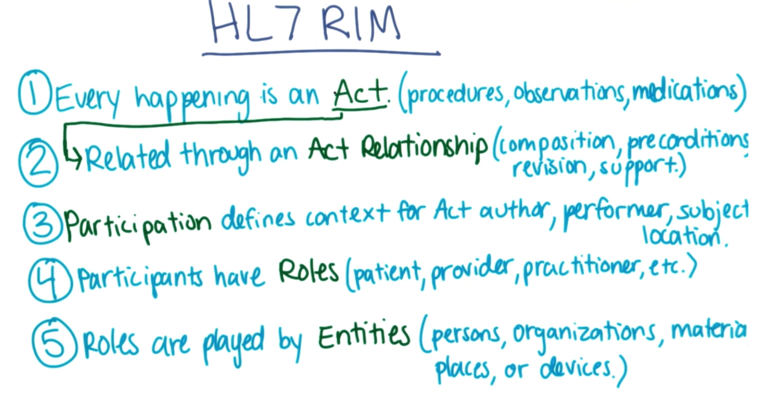 HL7 RIM
① Every happening is an Act. (procedures, observations, medications)
② Related through an Act Relationship (composition, preconditions,
revision, support.)
③ Participation defines context for Act author, performer, subject
location.
④ Participants have Roles (patient, provider, practitioner, etc.)
⑤ Roles are played by Entities (persons, organizations, materia
places, or devices.)